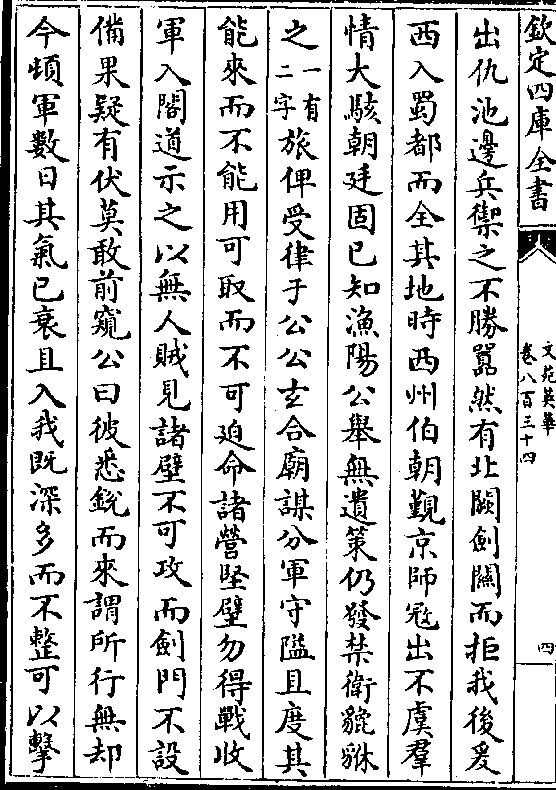 欽定四庫全書
文苑英華
卷八百三十四
四
出仇池邊兵禦之不勝囂然有北闕劍關而拒我後爰
西入蜀都而全其地時西州伯朝覲京師寇出不虞羣
情大駭朝廷固已知漁陽公舉無遺策仍發禁衛貔貅
之一有二字旅俾受律于公公玄合廟謀分軍守隘且度其
能來而不能用可取而不可迫命諸營堅壁勿得戰收
軍入閣道示之以無人賊見諸壁不可攻而劍門不設
備果疑有伏莫敢前窺公曰彼悉銳而來謂所行無却
今頓軍數日其氣已衰且入我既深多而不整可以擊